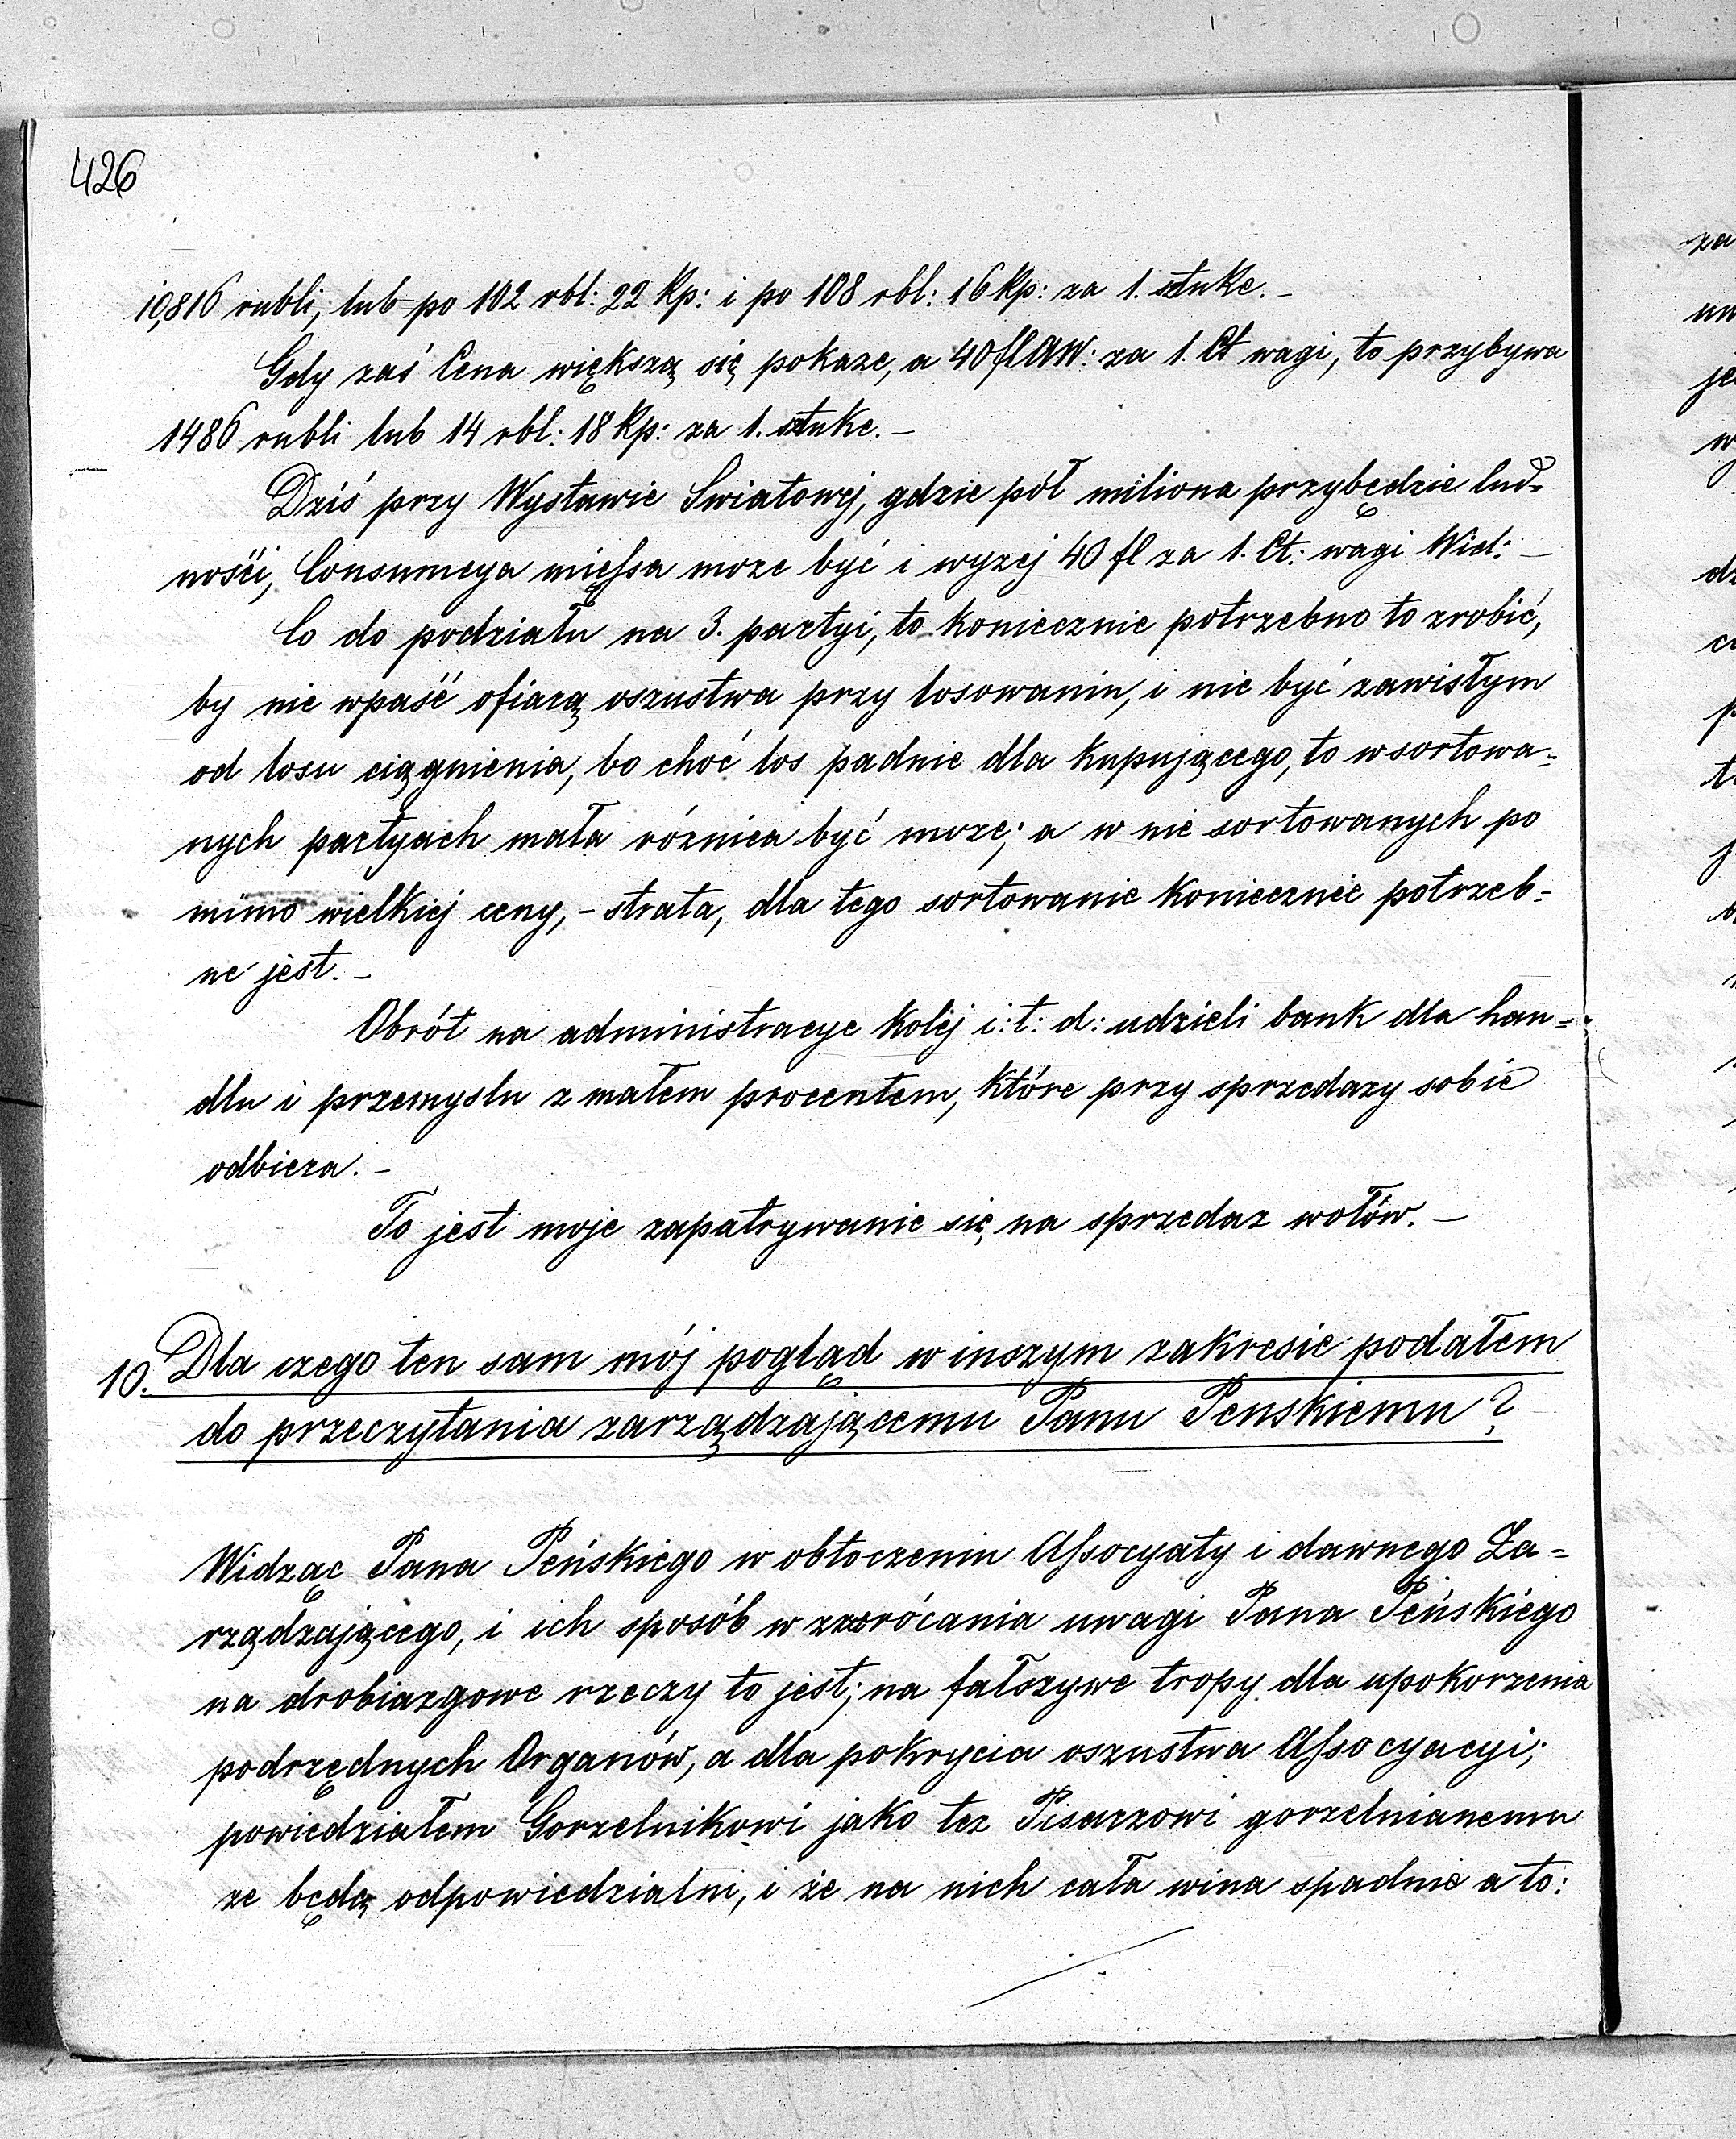 426
10,816 rubli, lub po 102 rbl: 22 Kp: i po 108 rbl: 16 Kp: za 1. sztuke. –
Gdy zaś Cena większą się pokaze, a 40 fl AW: za 1. Ct wagi, to przybywa
1486 rubli lub 14 rbl: 18 Kp: za 1. sztuke. –
Dziś przy Wystawie Swiatowej, gdzie pół miliona przybędzie lud=
nośći, Consumcya mięssa moze być i wyzej 40 fl za 1. Ct: wagi Wied: –
Co do podziału na 3. partyi, to koniecznie potrzebno to zrobić,
by nie wpaść ofiarą oszustwa przy losowaniu, i nie być zawisłym
od losu ciągnienia, bo choć los padnie dla kupującego, to w sortowa=
nych partyach mała róznica być moze; a w nie sortowanych po
mimo wielkiej ceny, – strata, dla tego sortowanie koniecznie potrzeb=
ne jest. –
Obrót na administracye kolej i: t: d: udzieli bank dla han=
dlu i przemyslu z małem procentem, które przy sprzedazy sobie
odbiera. –
To jest moje zapatrywanie się na sprzedaz wołów. –
10. Dla czego ten sam mój pogląd w inszym zakresie podałem
do przeczytania zarządzającemu Panu Penskiemu?
Widząc Pana Peńskiego w obtoczeniu Assocyaty i dawnego Za=
rządzającego, i ich sposób w zwrócania uwagi Pana Peńskiego
na drobiazgowe rzeczy to jest; na fałszywe tropy dla upokorzenia
podrzędnych Organów, a dla pokrycia oszustwa Assocyacyi;
powiedziałem Gorzelnikowi jako tez Pisarzowi gorzelnianemu
ze będą odpowiedzialni, i że na nich cała wina spadnie a to: